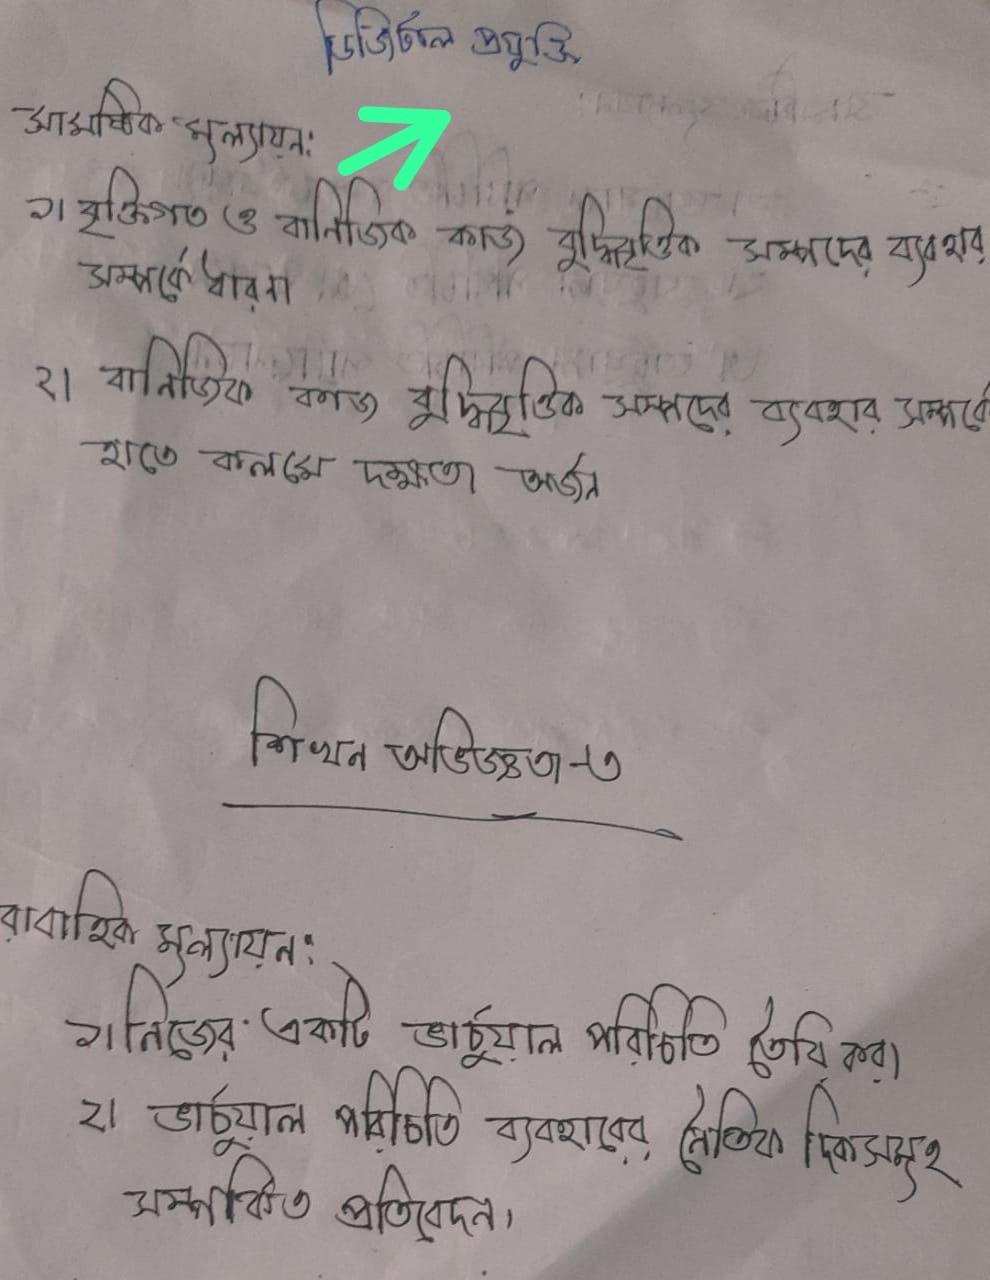 ডিজিটাল প্রযুক্তি
সামষ্টিক মূল্যায়ন:
১। বৃক্তিগত ও বানিজিক কাজে বুদ্ধিবৃত্তিক সম্পদের ব্যবহার
সম্পর্কে ধারনা
২। বানিজিক কাজে বুদ্ধিবৃত্তিক সম্পদের ব্যবহার সম্পর্কে
হাতে কলমে দক্ষতা অর্জন
শিখন অভিজ্ঞতা -৩
রাবাহিক মূল্যায়ন:
১। নিজের একটি ভার্চুয়াল পরিচিতি তৈরি কর।
২। ভার্চুয়াল পরিচিতি ব্যবহারের নৈতিক দিকসমূহ
সম্পর্কিত প্রতিবেদন।